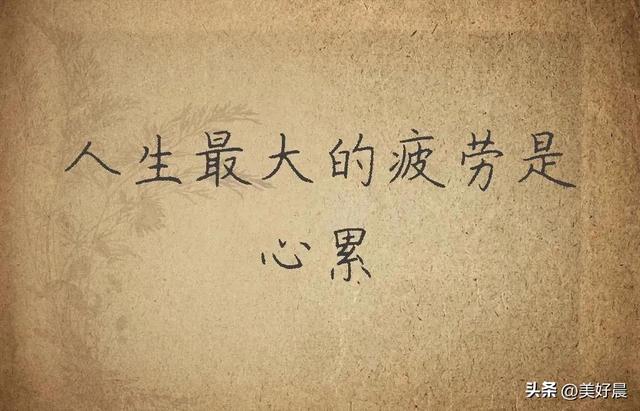 人生最大的疲劳是
心累
头条 @美好晨